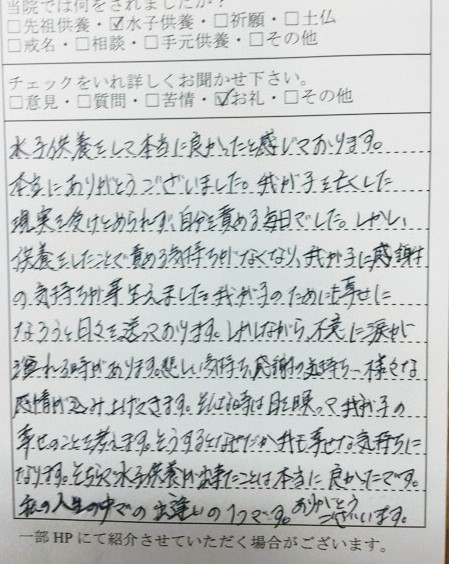 当院では何をされましたか？
□先祖供養・☑水子供養・□祈願・□土仏
□戒名・□相談・□手元供養・□その他
チェックをいれ詳しくお聞かせ下さい。
□意見・□質問・□苦情・☑お礼・□その他
水子供養をして本当に良かったと感じております。
本当にありがとうございました。我が子を亡くした
現実を受けとめられず、自分を責める毎日でした。しかし、
供養をしたことで責める気持ちがなくなり、我が子に感謝
の気持ちが芽生えました。我が子のためにも幸せに
なろうと日々を送っております。しかしながら、不意に涙が
溢れる時があります。悲しい気持ち、感謝の気持ち…様々な
感情が込み上げてきます。そんな時は目を瞑って我が子の
幸せのことを考えます。そうするとなぜだか我も幸せな気持ちに
なります。そちらで水子供養が出来たことは本当に良かったです。
私の人生の中での出逢いの1つです。ありがとうございます。
一部HPにて紹介させていただく場合がございます。